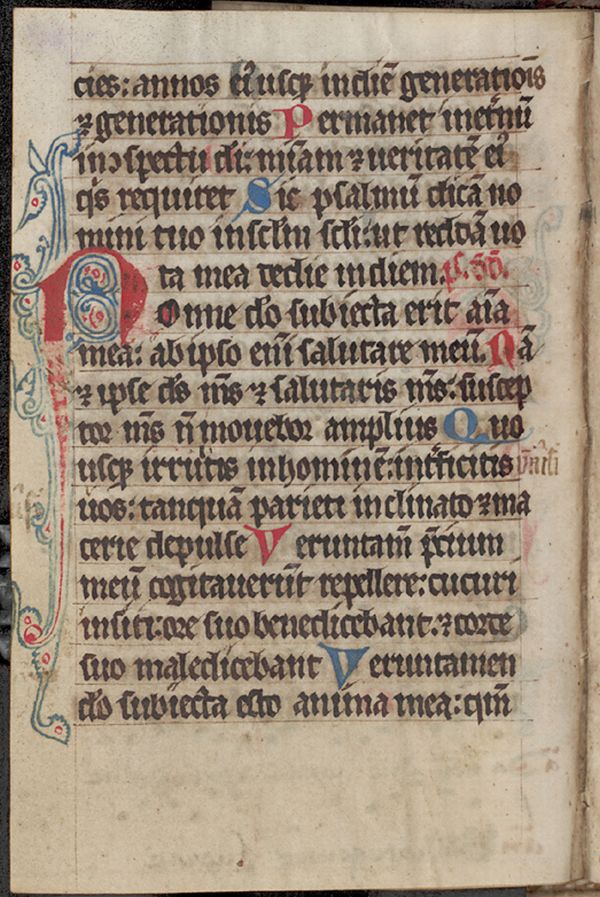 cies: annos eiꝰ usqꝫ in diē generatiōis
⁊ generationis Permanet in et̄nū
in ↄspectu di: mīam ⁊ ueritatē eiꝰ
q̄s requiret Sic psalmū dicā no
mini tuo in sclm scli: ut reddā uo
ta mea de die in diem. ps. dd.
Nonne dō subiecta erit aīa
mea: ab ipso eni salutare meū. Nā
⁊ ipse ds ms ⁊ salutaris ms: suscep
tor ms n̄ mouebor amplius Quo
usqꝫ irruitis in hominē: int̄ficitis vniūsi
uos: tanquā parieti inclinato ⁊ ma
cerie depulse Veruntam̄ p̄cium
meū cogitauerūt repellere: cucuri
in siti: ore suo benedicebant: ⁊ corde
suo maledicebant Veruntamen
dō subiecta esto anima mea: qm̄